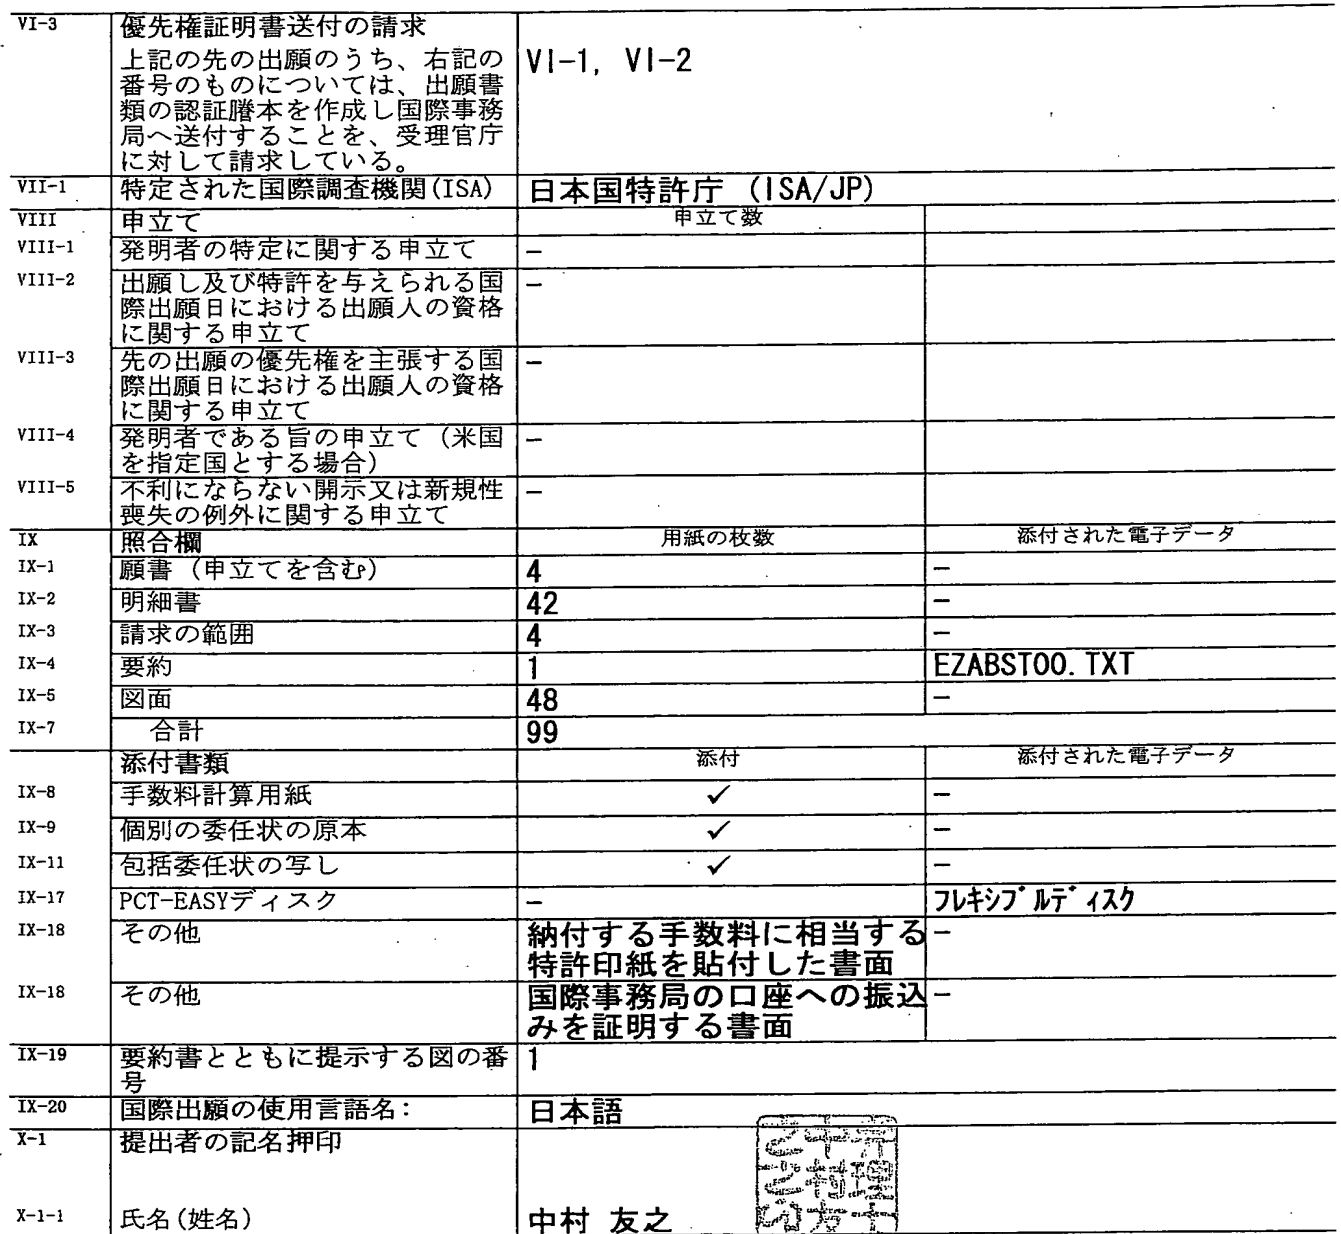 VI-3 優先権証明書送付の請求
上記の先の出願のうち、右記の VI-1, VI-2
番号のものについては、出願書
類の認証謄本を作成し国際事務
局へ送付することを、受理官庁
に対して請求している。
VII-1 特定された国際調査機関(ISA) 日本国特許庁 (ISA/JP)
VIII 申立て 申立て数
VIII-1 発明者の特定に関する申立て –
VIII-2 出願し及び特許を与えられる国 –
際出願日における出願人の資格
に関する申立て
VIII-3 先の出願の優先権を主張する国 –
際出願日における出願人の資格
に関する申立て
VIII-4 発明者である旨の申立て (米国 –
を指定国とする場合)
VIII-5 不利にならない開示又は新規性 –
喪失の例外に関する申立て
IX 照合欄 用紙の枚数 添付された電子データ
IX-1 願書 (申立てを含む) 4 –
IX-2 明細書 42 –
IX-3 請求の範囲 4 –
IX-4 要約 1 EZABST00.TXT
IX-5 図面 48 –
IX-7 合計 99
添付書類 添付 添付された電子データ
IX-8 手数料計算用紙 ✓ –
IX-9 個別の委任状の原本 ✓ –
IX-11 包括委任状の写し ✓ –
IX-17 PCT-EASYディスク – フレキシブルディスク
IX-18 その他 納付する手数料に相当する –
特許印紙を貼付した書面
IX-18 その他 国際事務局の口座への振込 –
みを証明する書面
IX-19 要約書とともに提示する図の番 1
号
IX-20 国際出願の使用言語名: 日本語
X-1 提出者の記名押印
X-1-1 氏名(姓名) 中村 友之